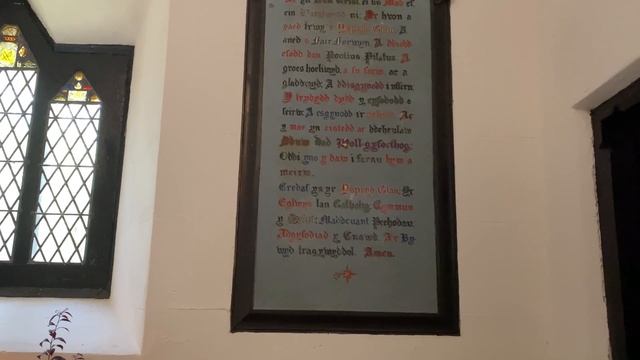 ein Harglwydd ni; Yr hwn a
gaed trwy yr Yspryd Glan A
aned o Fair Forwyn A ddiodd
efodd dan Pontius Pilatus A
groes hoeliwyd, a fu farw, ac a
gladdwyd; A ddisgynodd i uffern
Y trydydd dydd y cyfododd o
feirw; A esgynodd i'r nefoedd Ac
y mae yn eistedd ar ddeheulaw
Dduw Dad Holl-gyfoethog:
Oddi yno y daw i farnu byw a
meirw.
Credaf yn yr Yspryd Glan; Yr
Eglwys Lan Gatholig; Cymmun
y Saint; Maddeuant Pechodau.
Adgyfodiad y Cnawd, A'r By-
wyd tragywyddol. Amen.